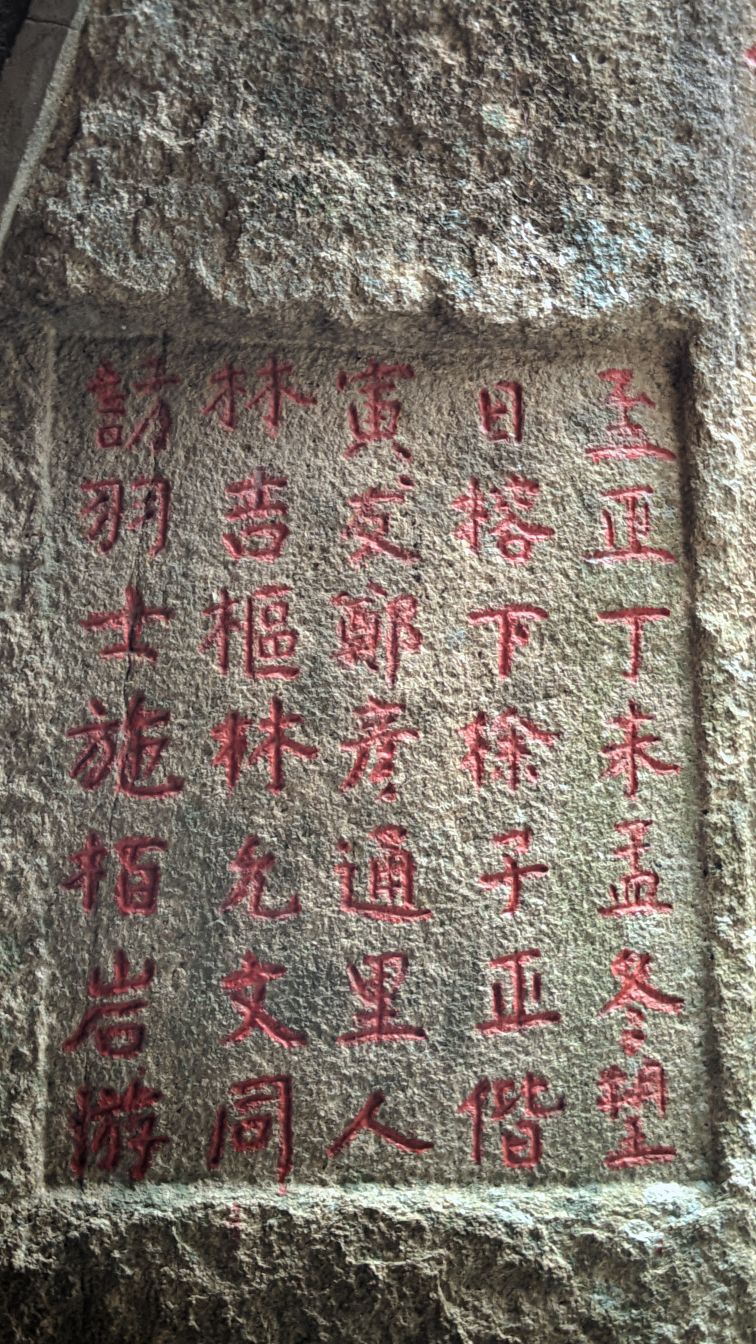 孟正丁未孟冬望
日榕下徐子正偕
寅友鄭彦通里人
林吉樞林允文同
訪羽士施栢岩游